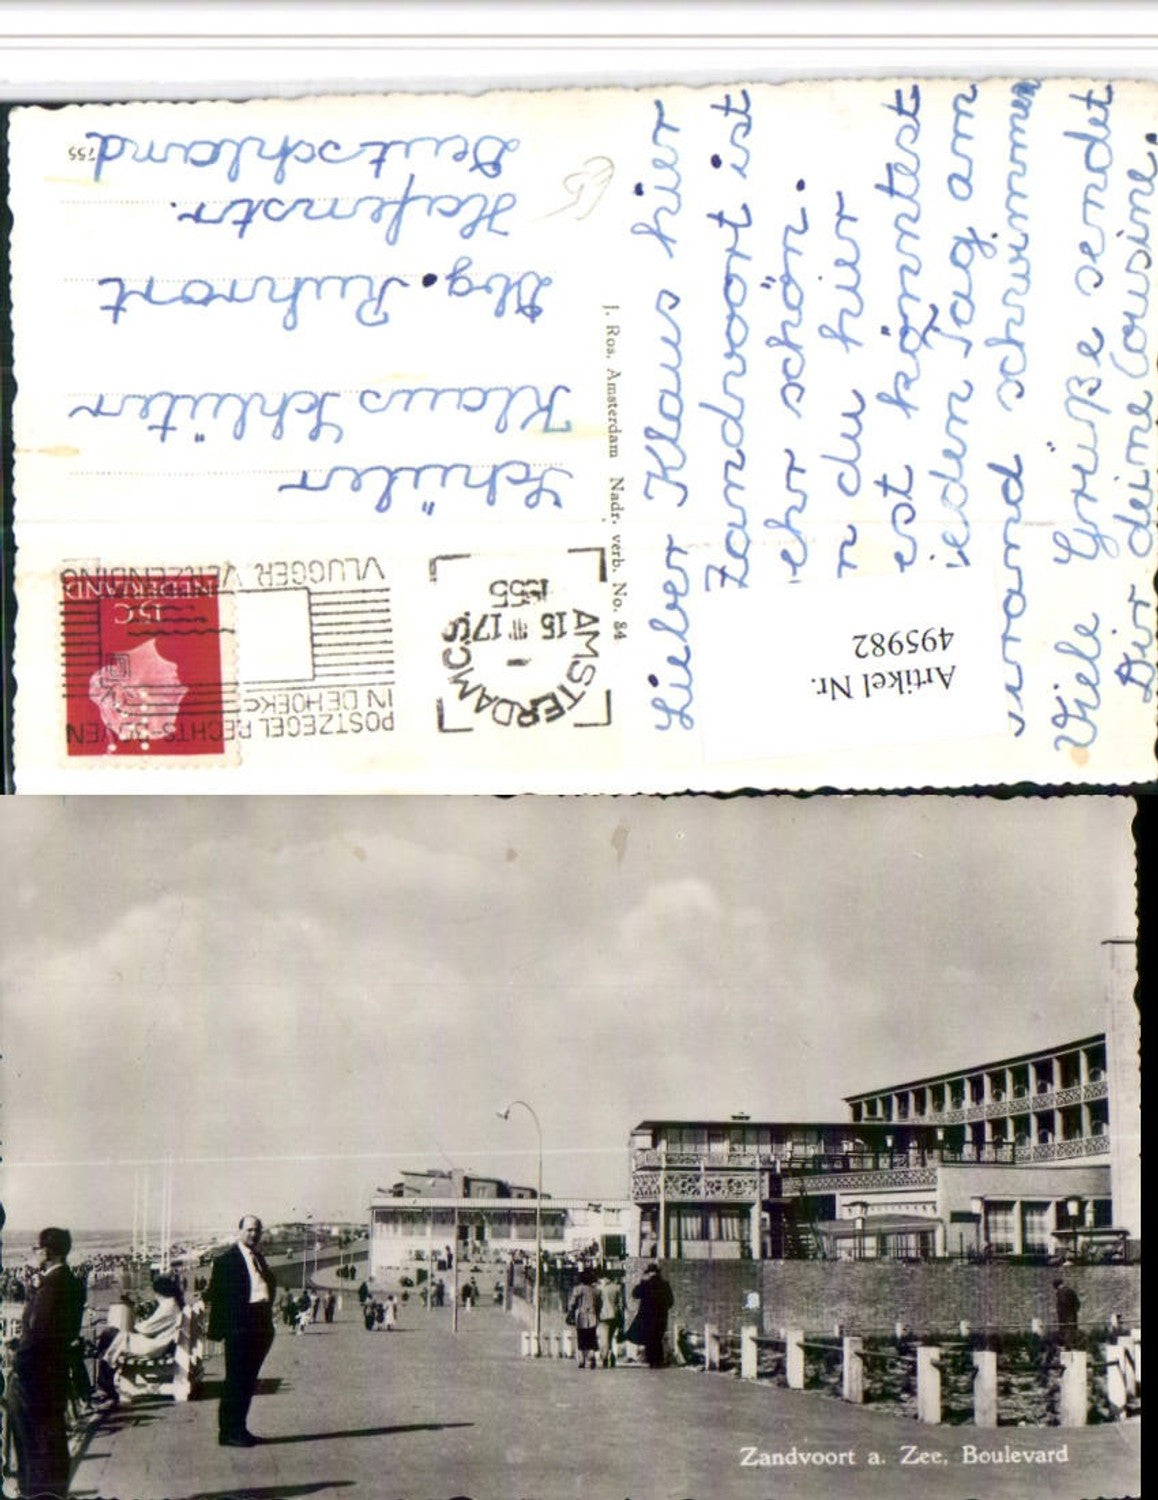 Lieber Klaus hier
Zandvoort ist
ehr schön.
n du hier
est könntest
jeden Tag am
strand schwimmen
Viele Grüße sendet
Dir deine Cousine.
Artikel Nr.
495982
J. Ros, Amsterdam Nadr. verb. No. 84
POSTZEGEL RECHTS BOVEN
IN DE HOEK
VLUGGER VERZENDING
NEDERLAND
15C
AMSTERDAM C.S.
1955
Schüler
Klaus Schlüter
Dbg. Ruhrort
Hafenstr.
Deutschland
755
Zandvoort a. Zee, Boulevard